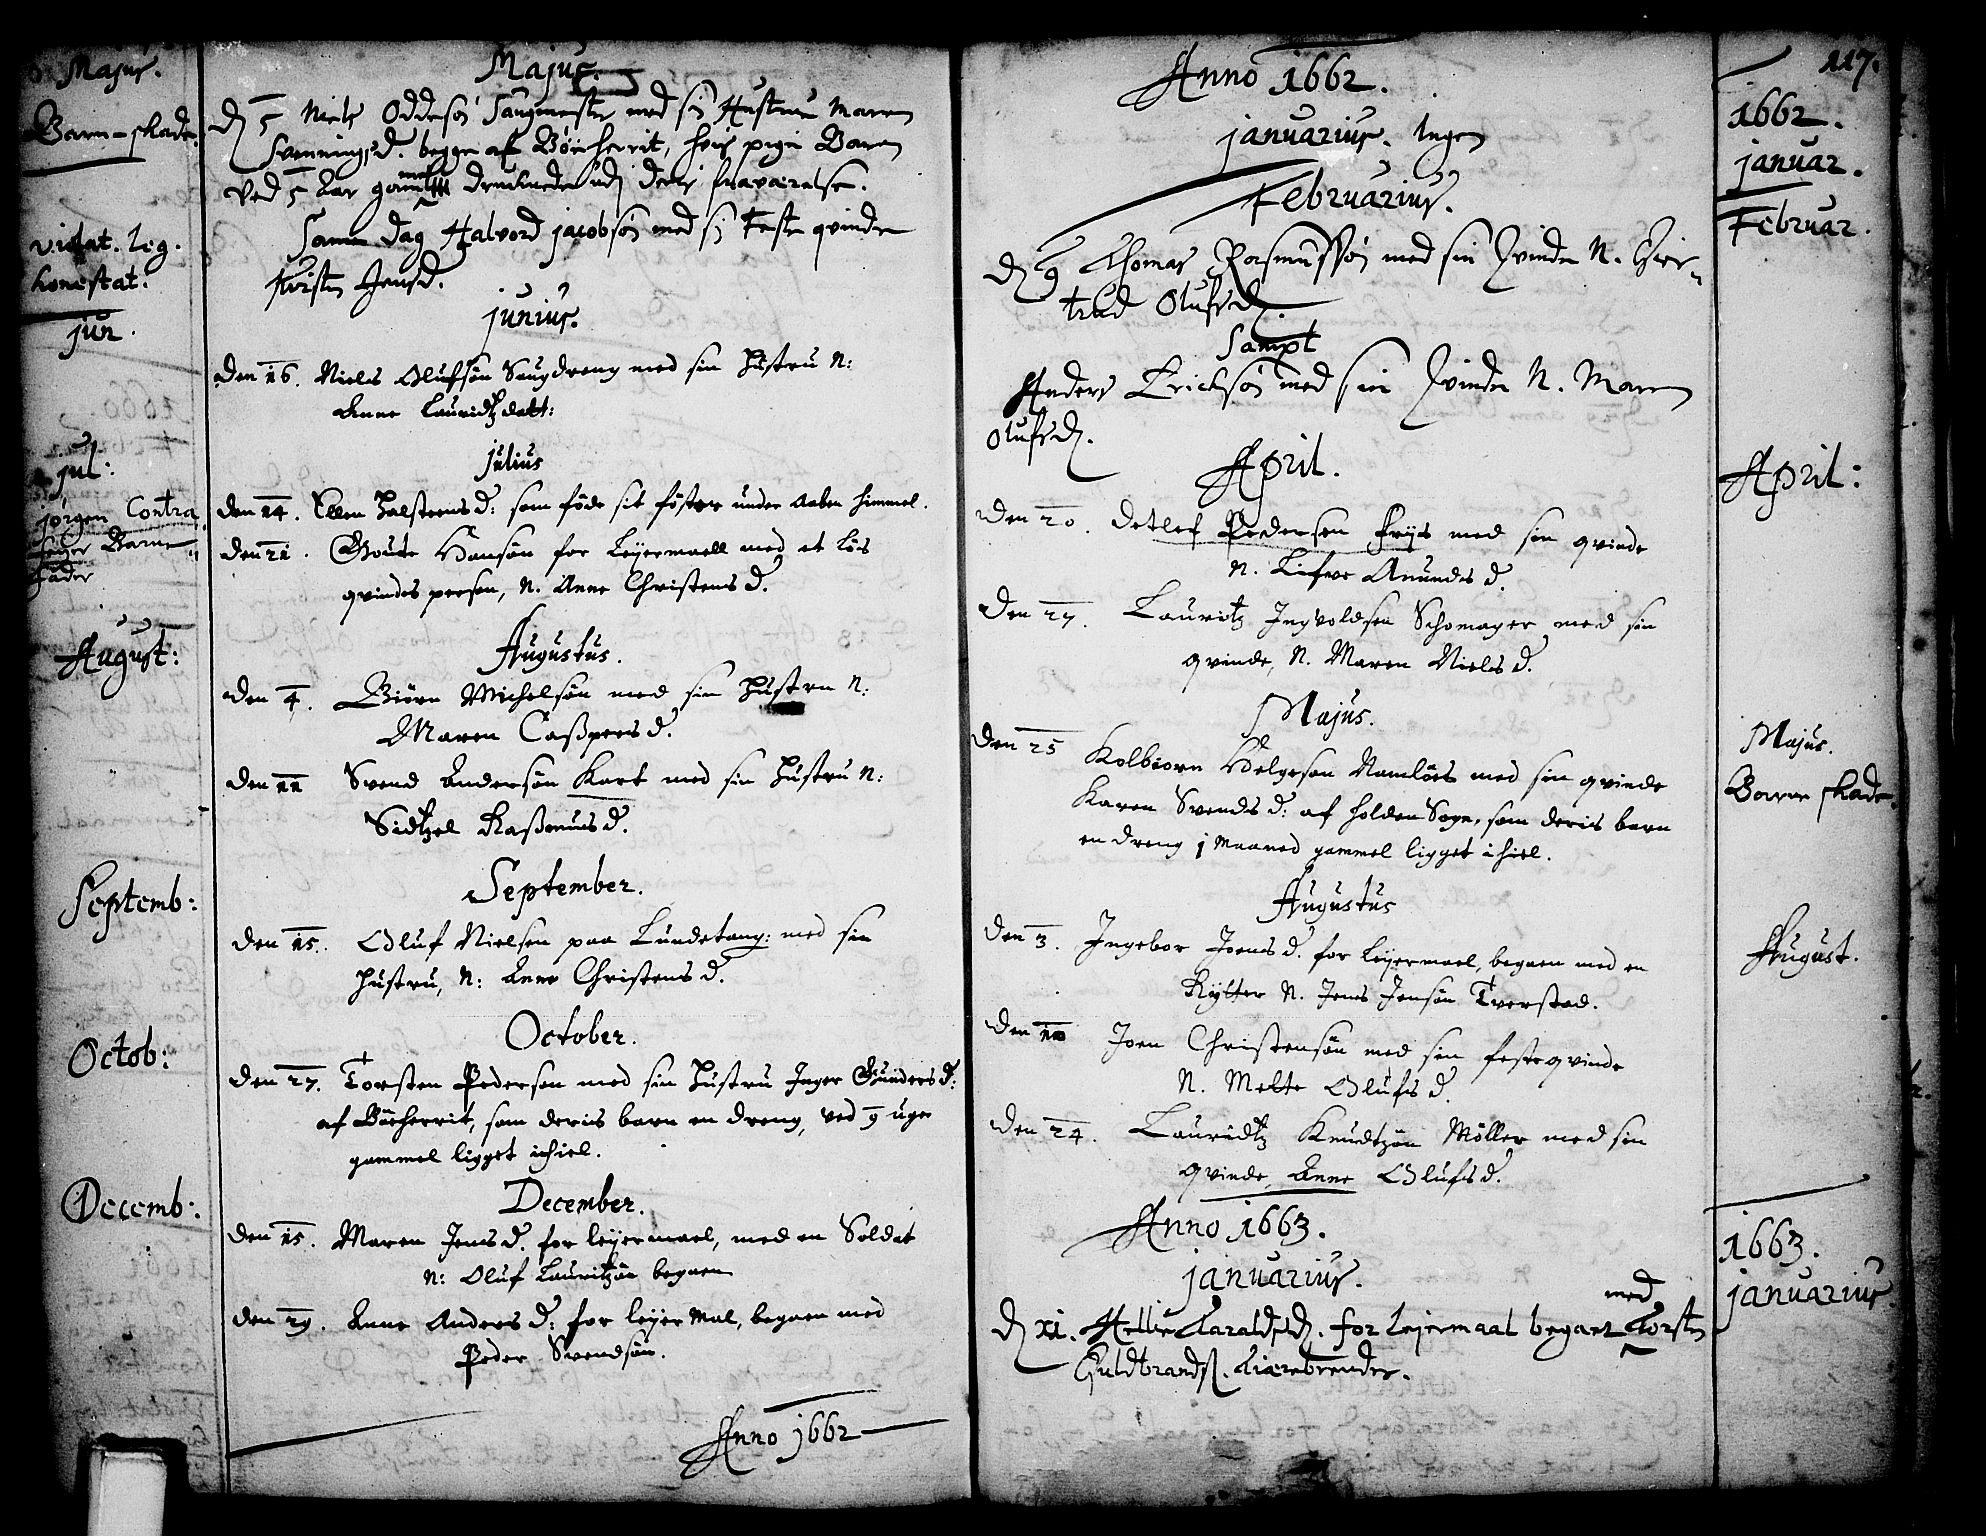 Majus.
Barne-skade.
violat. leg.
honestat.
jun.
jul:
jörgen Contra
Barne
fader
August:
Septemb:
Octob:
Decemb:
Majus.
D 5 Niels Oddesøn Saugmester med sin Hustrue Maren
Svennings D. begge af Böeherrit, hvis pige Barn
ved 5 aar drucknede udj deris fraværelse.
Samme dag Halvord jacobsøn med sin Feste qvinde
Kirsten Jensd.
junius.
Den 16. Niels Olufsön Saugdreng med sin Hustru N:
Anne Lauridtz datt:
julius
Den 14. Ellen Halsteens D: som föde sit föster under aaben himmel.
Den 21. Goute Hansön for Leyermaell med et lös
qvindes person, N. Anne Christens D.
Augustus.
Den 4. Biörn Michelsön med sin Hustru N:
Maren Caßpers D.
Den 11 Svend Andersön Kart med sin Hustru N:
Sidtzel Raßmus D.
September.
Den 15. Oluf Nielsen paa Lundetang: med sin
Hustru, N: Anne Christens D.
October.
Den 27. Torsten Pedersen med sin Hustru Inger Gunders D:
af Böeherrit, som deris barn en dreng, ved 9 uger
gammel ligget ihiel.
December.
Den 15. Maren Jens D. for leyermael, med en Soldat
N: Oluf Lauritzön begaen
Den 29. Anne Anders D: for leyer Mal, begaen med
Peder Svendsön.
Anno 1662
117.
Anno 1662.
januarius. Ingen
Februarius.
D 9 Thomas Rasmussøn med sin Qvinde N. Gier-
trud Olufs D.
Sampt
Anders Erichsøn med sin Qvinde N. Maren
Olufs D.
April.
Den 20. Detlef Pedersen Fryis med sin qvinde
N. Lifve Anunds D.
Den 27. Lauritz Ingvoldsen Schomager med sin
qvinde, N. Maren Niels D.
Majus.
Den 25 Kolbiorn Helgesen Namlös med sin qvinde
Karen Svends D: af Holden Sogn, som deris barn
en dreng j Maaned gammel ligget ihiel.
Augustus
Den 3. Ingebor Joens D. for Leyermael, begaen med en
Rytter N. Jens Jensön Tverstad.
Den 10 Joen Christensön med sin feste qvinde
N. Mette Olufs D.
Den 24. Lauridtz Knudtzön Möller med sin
qvinde, Anne Olufs D.
Anno 1663.
januarius.
med
D xi. Hellie Taralds D. for lejermaal begaet Torsten
Guldbrands. Tiærebrender.
1662.
januar.
Februar.
April:
Majus.
Barne skade.
August.
1663.
januarius.